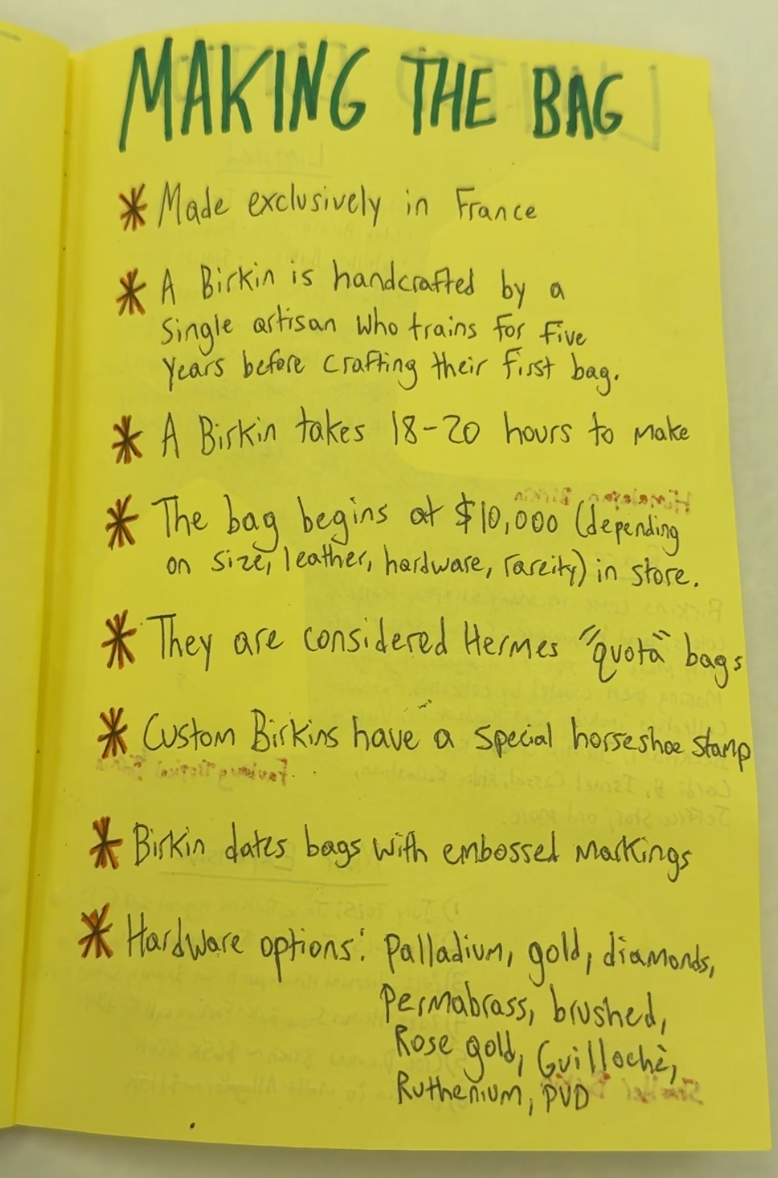 MAKING THE BAG
* Made exclusively in France
* A Birkin is handcrafted by a
single artisan who trains for five
years before crafting their first bag.
* A Birkin takes 18-20 hours to make
Himalayan Birkin
* The bag begins at $10,000 (depending
on size, leather, hardware, rareity) in store.
* They are considered Hermes "quota" bags
* Custom Birkins have a special horseshoe stamp
* Birkin dates bags with embossed markings
* Hardware options: Palladium, gold, diamonds,
Permabrass, brushed,
Rose gold, Guillochè,
Ruthenium, PVD